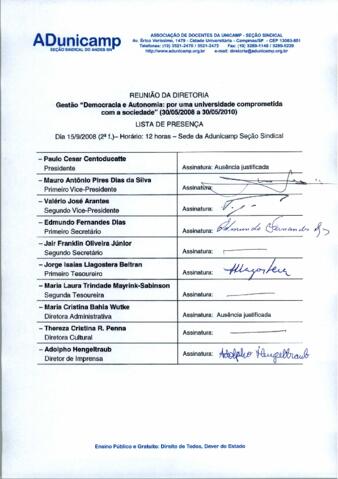 ADunicamp
SEÇÃO SINDICAL DO ANDES-SN
ASSOCIAÇÃO DE DOCENTES DA UNICAMP - SEÇÃO SINDICAL
Av. Érico Veríssimo, 1479 - Cidade Universitária - Campinas/SP - CEP 13083-851
Telefones: (19) 3521-2470 / 3521-2473 Fax: (19) 3289-1148 / 3289-5239
http://www.adunicamp.org.br e-mail: diretoria@adunicamp.org.br
REUNIÃO DA DIRETORIA
Gestão "Democracia e Autonomia: por uma universidade comprometida
com a sociedade" (30/05/2008 a 30/05/2010)
LISTA DE PRESENÇA
Dia 15/9/2008 (2ª f.)– Horário: 12 horas – Sede da Adunicamp Seção Sindical
– Paulo Cesar Centoducatte
Presidente
Assinatura: Ausência justificada
– Mauro Antônio Pires Dias da Silva
Primeiro Vice-Presidente
Assinatura:
– Valério José Arantes
Segundo Vice-Presidente
Assinatura:
– Edmundo Fernandes Dias
Primeiro Secretário
Assinatura: Edmundo Fernandes Dias
– Jair Franklin Oliveira Júnior
Segundo Secretário
Assinatura:
– Jorge Isaías Llagostera Beltran
Primeiro Tesoureiro
Assinatura: Llagostera
– Maria Laura Trindade Mayrink-Sabinson
Segunda Tesoureira
Assinatura:
– Maria Cristina Bahia Wutke
Diretora Administrativa
Assinatura: Ausência justificada
– Thereza Cristina R. Penna
Diretora Cultural
Assinatura:
– Adolpho Hengeltraub
Diretor de Imprensa
Assinatura: Adolpho Hengeltraub
Ensino Público e Gratuito: Direito de Todos, Dever do Estado